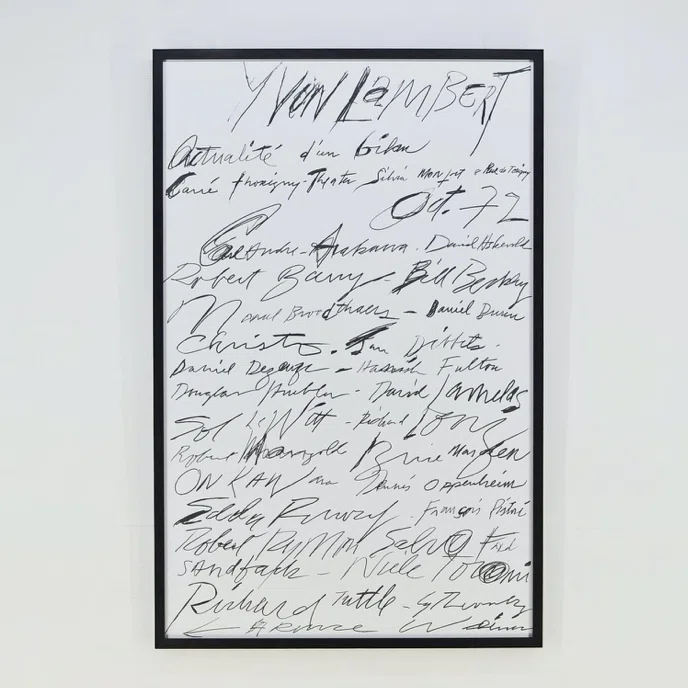 YVON LAMBERT
Actualité d'un bilan
Carré Thorigny-Theater Silvia Monfort
Oct. 72
Carl Andre - Arakawa - David Askevold
Robert Barry - Bill Beckley
Marcel Broodthaers - Daniel Buren
Christo - Jan Dibbets -
Daniel Dezeuze - Hamish Fulton
Douglas Huebler - David Lamelas
Sol LeWitt - Richard Long
Robert Mangold Brice Marden
ON KAWara Dennis Oppenheim
Edda Renouf - François Ristori
Robert Ryman Salvo Fred
SANDback - Niele Toroni
Richard Tuttle - Cy Twombly
LAWRence Weiner